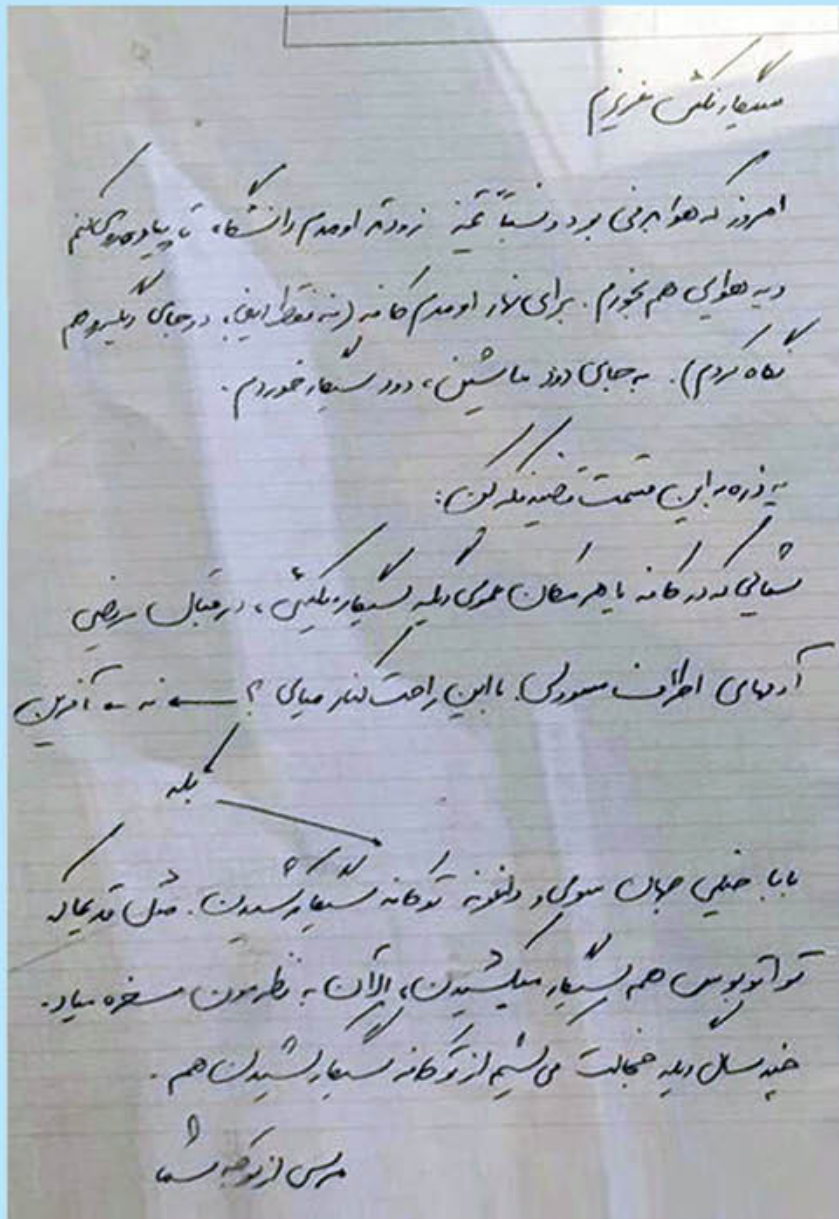 سیگار نکش عزیزم
امروز که هوا برفی بود و نسبتاً تمیز زودتر اومدم دانشگاه، تا پیاده‌روی کنم
و یه هوایی هم بخورم. برای نهار اومدم کافه (نه فقط اینجا، در جای دیگه‌رو هم
نگاه کردم). به جای دود ماشین، دود سیگار خوردم.
یه ذره به این قسمت قضیه فکر کن:
شمایی که در کافه یا هر مکان عمومی دیگه سیگار میکشی، در قبال مریضی
آدمهای اطراف مسوولی. با این راحت کنار میای؟ ← نه ← آفرین
بله
بابا خیلی جهان سومی و داغونه تو کافه سیگار کشیدن. مثل قدیما که
تو اتوبوس هم سیگار میکشیدن، الآن به نظرمون مسخره میاد.
چند سال دیگه خجالت می‌کشیم از تو کافه سیگار کشیدن هم.
مرسی از توجه شما